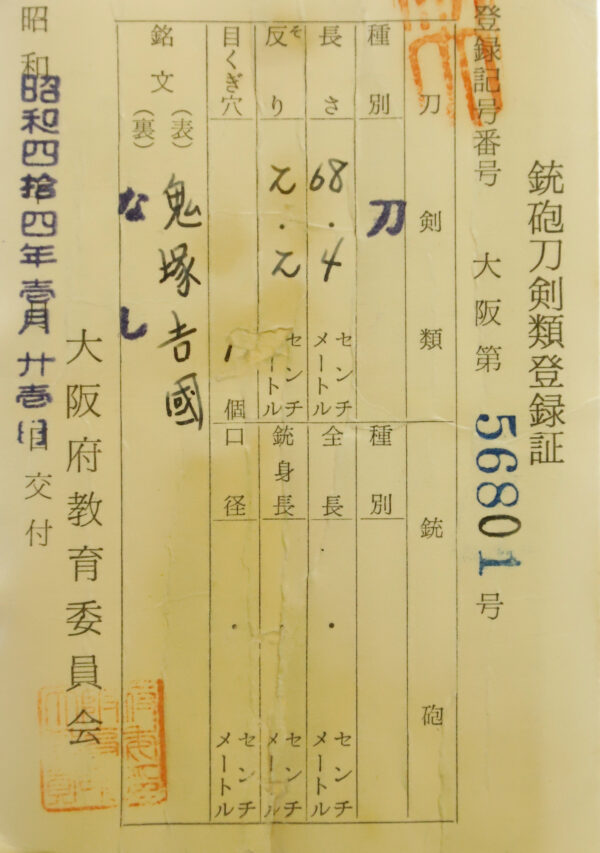 銃砲刀剣類登録証
登録記号番号 大阪第 56801 号
刀剣類
銃砲
種別 刀
長さ 68.4 センチメートル
反り そ 2.2 センチメートル
目くぎ穴 1 個
銘文 (表) 鬼塚吉國
(裏) なし
種別
全長 . センチメートル
銃身長 . センチメートル
口径 . センチメートル
昭和
昭和四拾四年壱月廿壱日
日交付
大阪府教育委員会